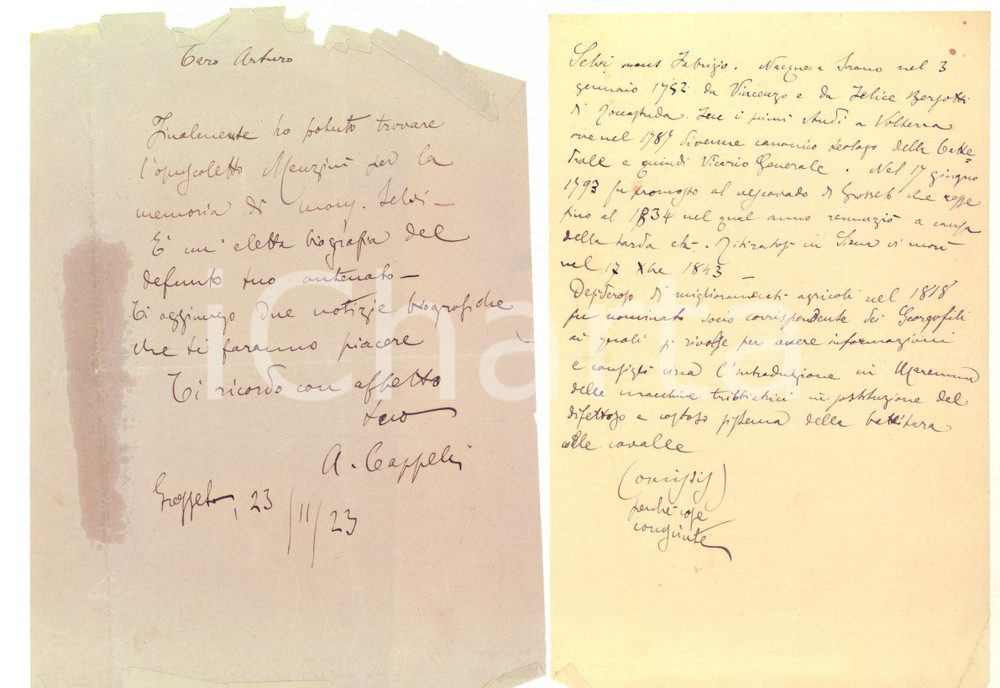 Caro Arturo
Finalmente ho potuto trovare
l'opuscoletto Menzini per la
memoria di mons. Selvi –
E un' eletta biografia del
defunto tuo antenato –
Ti aggiungo due notizie biografiche
che ti faranno piacere
Ti ricordo con affetto
tuo
A. Cappelli
Grosseto, 23/11/23
Selvi mons Fabrizio. Nacque a Sorano nel 3
gennaio 1752 da Vincenzo e da Felice
di Roccastrada. Fece i primi studi a Volterra
ove nel 178 divenne canonico teologo della Catte=
drale e quindi Vicario Generale. Nel 17 giugno
1793 fu promosso al vescovado di Grosseto che resse
fino al 1834 nel qual anno rinunziò a causa
della tarda età. Ritiratosi in Siena vi morì
nel 17 Xbre 1843 –
Desideroso di miglioramenti agricoli nel 1818
fu nominato socio corrispondente dei Georgofili
ai quali si rivolse per avere informazioni
e consigli circa l'introduzione in Maremma
delle macchine in sostituzione del
difettoso e costoso sistema della battitura
colle cavalle
(omissis)
perchè cose
congiunte
iCharta